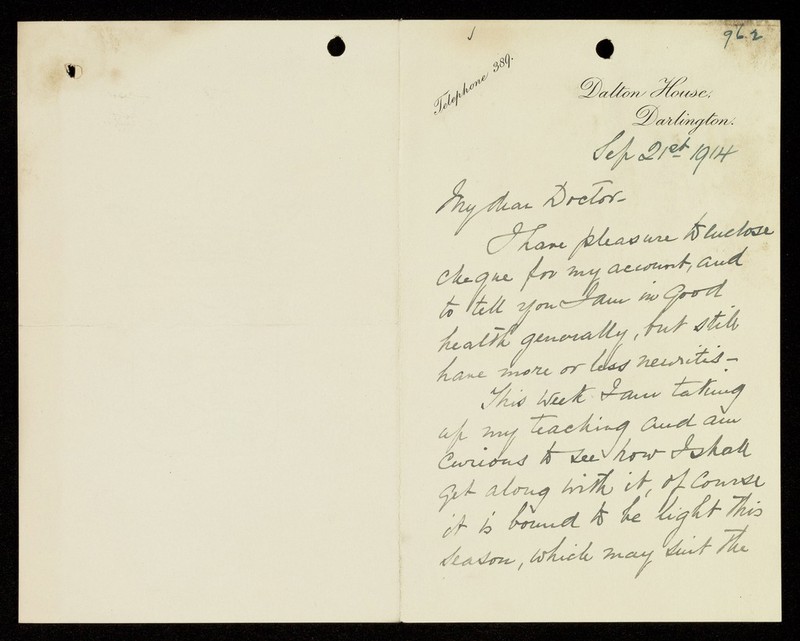 96.2
Telephone 389.
Dalton House.
Darlington.
Sep 21st 1914
My dear Doctor-
I have pleasure to enclose
cheque for my account, and
to tell you I am in good
health generally, but still
have more or less neuritis-
This week I am taking
up my teaching and am
curious to see how I shall
get along with it, of course
it is bound to be light this
season, which may suit the